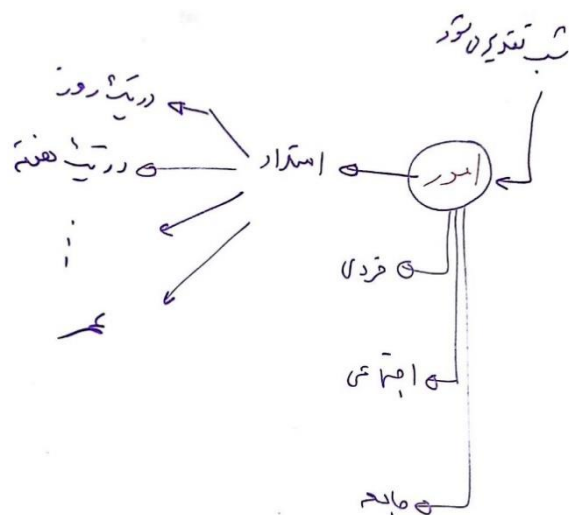 شب تقدیر می شود
امور
امتداد
در یک روز
در یک هفته
عمر
فردی
اجتماعی
جامعه